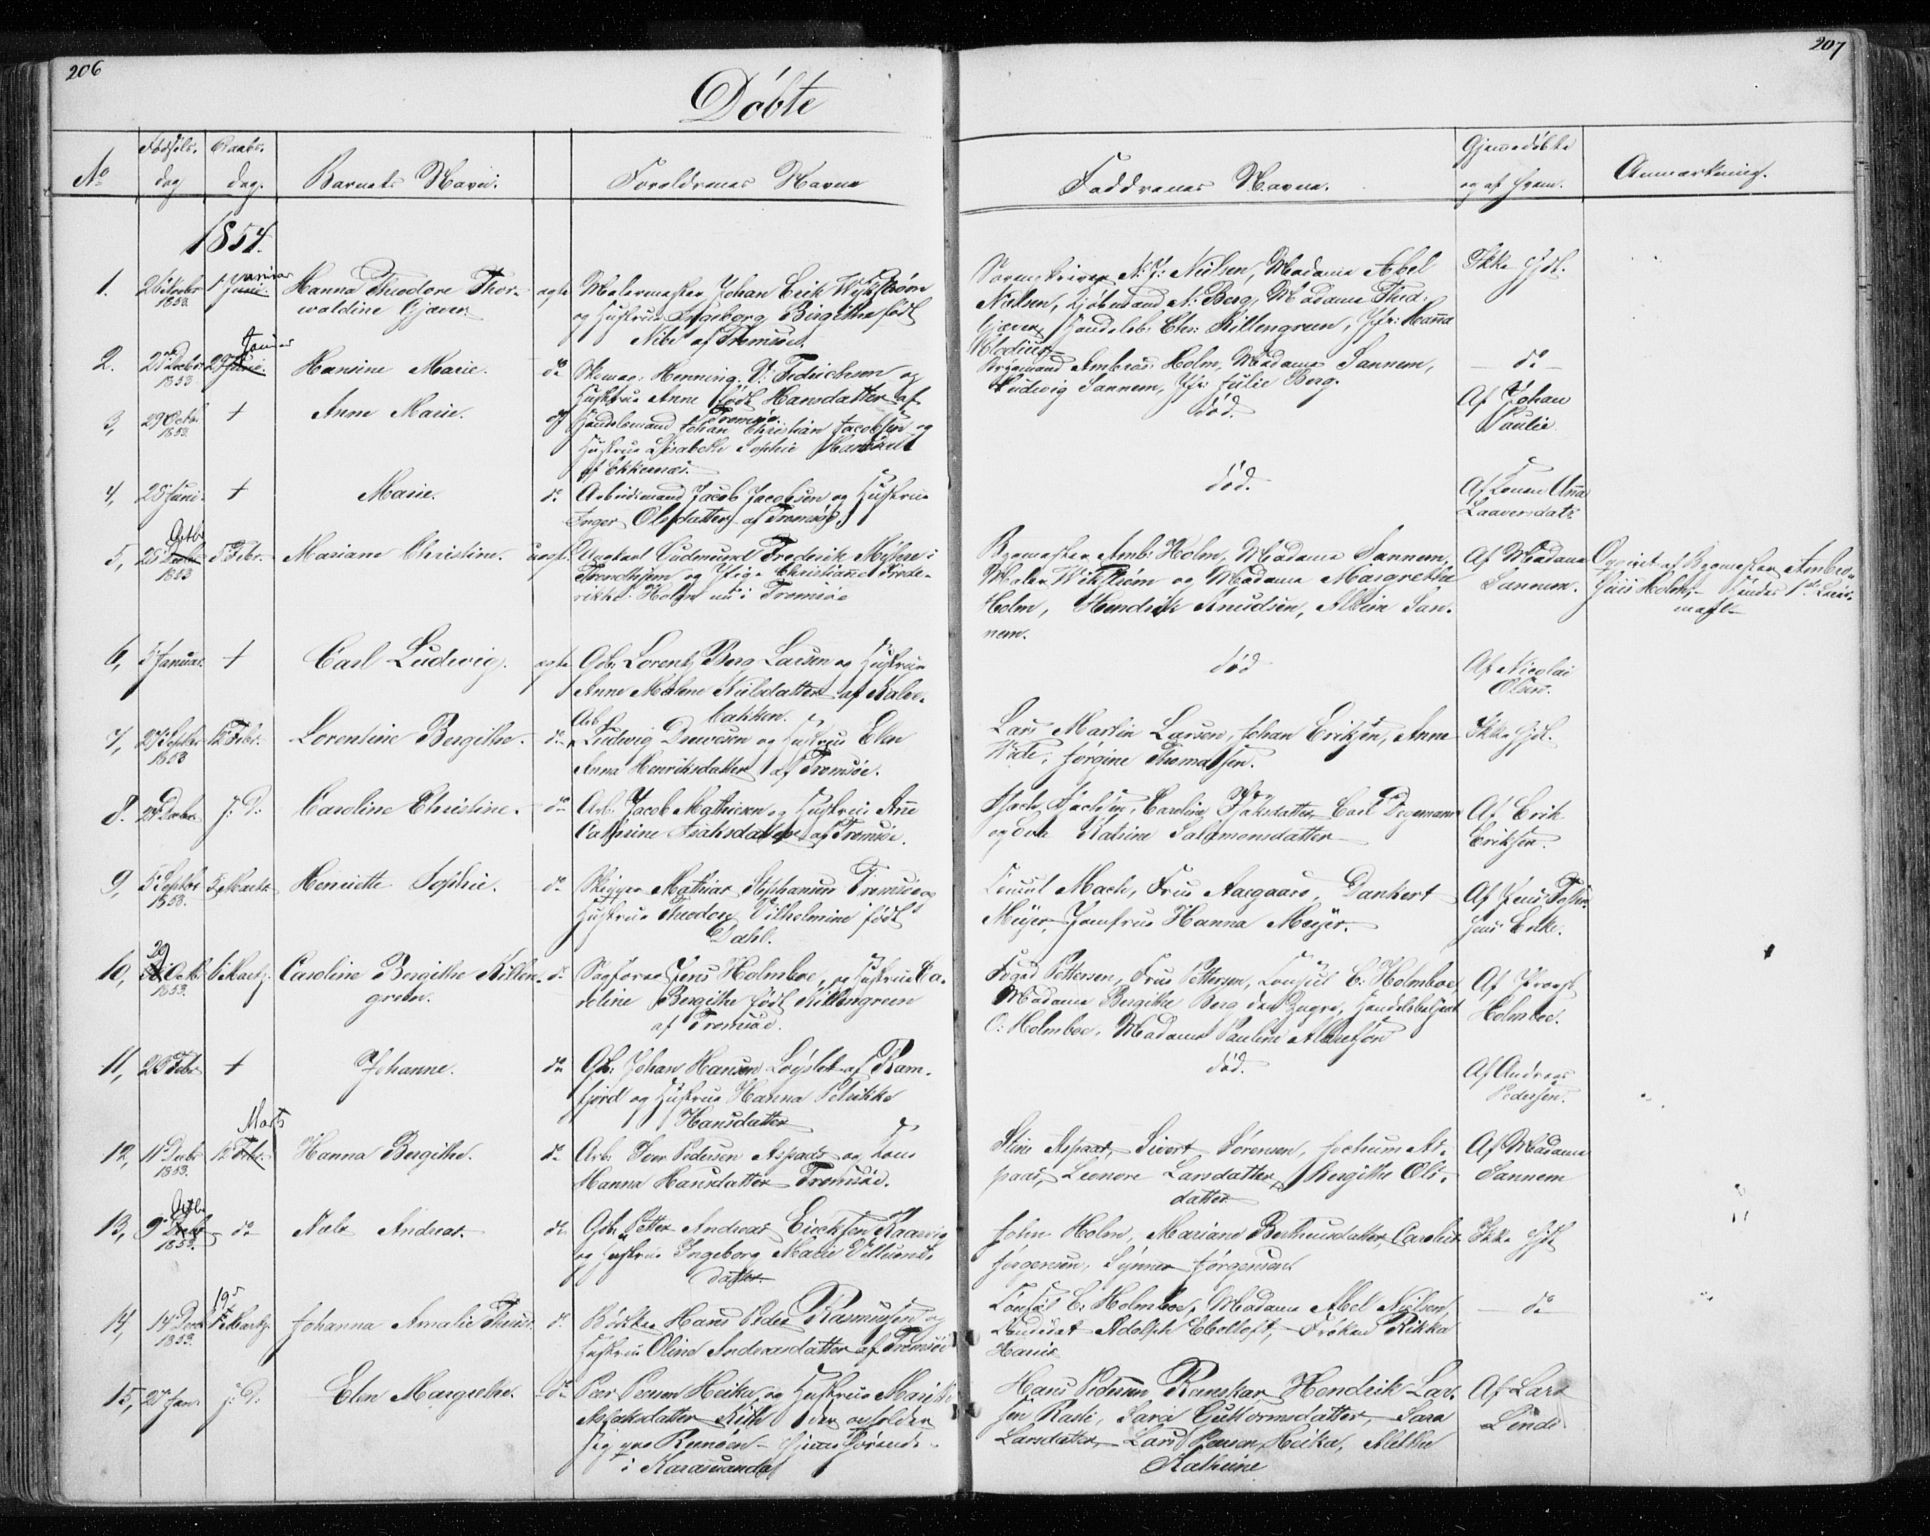 206
207
Döbte
No
Fødsels-
dag
Daabs-
dag.
Barnets Navn.
Foreldrenes Navne
Faddrenes Navne.
Gjemmedöbte
og af hvem.
Anmærkning.
1854.
1.
1853.
Januar
Hanna Theodore Thor-
waldine Gjæver
ægte
Malermester Johan Erik Wikstrøm
og Hustrue Ingeborg Birgitha født
af Tromsøe.
Sorenskriver N. J. Nielsen, Madame Abel
Nielsen, Kjøbmand N. Berg, Madame Thod.
Gjæver, Handelsb. Chr. Killengreen, Jfr. Hanna
Clodius
Ikke Hjd.
2.
27 Decbr
1853
Januar
Hansine Marie.
do
Henning D. Fedrichsen og
Hustrue Anne født Hansdatter af
Tromsøe
Ambros. Holm, Madame Sannem,
Ludvig Sannem, Jfr Julie Berg.
do
3,
29 Octb.
1853.
+
Anne Marie.
do
Handelsmand Johan Christian Jacobsen og
Hustrue Elisabethe Sophie
af Ekkernæs.
död.
Af Johan
Paulie.
4,
28 Juni
+
Marie.
do
Arbeidsmand Jacob Jacobsen og Hustrue
Inger Olsdatter af Tromsøe
död.
Af Konen Anna
Laaversdatr
5,
Octb
1853
5 Febr.
Mariane Christine.
uægte
Ungkarl Gudmund Frederik Møller i
Trondhjem og Pige Christiane Frede-
rikke Holm nu i Tromsøe
Bygmester Amb. Holm, Madame Sannem,
Maler Wikstrøm og Madame Margrethe
Holm, Hendrik Knudsen, Albin San-
nem.
Af Madame
Sannem.
Opgivet af Bygmester Ambro-
sius Holm, Hendes 1ste Leier-
maal
6,
5 Januar.
+
Carl Ludwig.
ægte
Arb. Lorentz Berg Larsen og Hustrue
Anne Malene Nielsdatter af Kalve-
bakken.
död
Af Nicolai
Olsen.
7,
27 Septbr
1853
12 Febr.
Lorentine Bergithe.
do
Arb.
Ludwig Drewesen og Hustrue Elen
Anna Henriksdatter af Tromsøe.
Lars Martin Larsen, Johan Eriksen, Anne
Wide, Jørgine Thomassen.
Ikke Hjd.
8.
J. D.
Caroline Christine.
do
Arb. Jacob Mathiesen og Hustrue Ane
Cathrine Isaksdatter af Tromsøe.
Caroline Isaksdatter Carl Degemann
og Kone Katrine Salamonsdatter
Af Erik
Eriksen.
9,
5 Septbr
1853.
5 Martz
Henriette Sophie.
do
Skipper Mathias Stephansen Tromsøe og
Hustrue Theodora Vilhelmine født
Dahl.
Consul Mack, Frue Aargaard, Dankert
Meyer, Jomfrue Hanna Meyer.
Enke.
10,
29
Octb.
1853.
6 Martz
Caroline Bergithe Killen-
green.
do
Sagfører Jens Holmboe, og Hustrue Ca-
roline Bergithe født Killengreen
af Tromsøe.
Foged Pettersen, Frue Pettersen, Consul C. Holmboe
Madame Bergithe Berg den Yngre, Handelsbetjent
O. Holmboe, Madame Pauline
Af Provst
Holmboe.
11,
20 Febr.
+
Johanne.
do
Gb. Johan Hansen Løyslet af Ram-
fjord og Hustrue Hanna Petrikke
Hansdatter
död.
Af Andreas
Pedersen.
12,
11 Decbr
1853.
Marts
12 Febr.
Hanna Bergithe.
do
Arb. Iver Pedersen Aspaas og Kone
Hanna Hansdatter Tromsøe.
Stine Aspaas, Sivert Sørensen, Jochum As-
paas, Leonore Larsdatter, Bergithe Ols-
datter
Af Madame
Sannem
13,
Octb.
9 Decbr
1853.
do
Nils Andreas.
do
Gb. Petter Andreas Erichsen Kaarvig
og Hustrue Ingeborg Marie Villums-
datter.
John Holm, Mariane Bertheusdatter, Caroline
Jørgensen, Synner Jørgensen
Ikke Hjd
14,
14 Decbr
1853.
19
Martz.
Johanna Amalie
do
Bødker Hans Peder Rasmussen og
Hustrue Oline Andreasdatter af Tromsøe
Consul C. Holmboe, Madame Abel Nielsen,
Kandidat Adolph Ebeltoft, Frøken Rikka
Harris
do
15,
27 Jan.
J. D.
Elen Margrethe.
do
Peer Persen Heika og Hustrue Marith
Aslaksdatter Kith der opholder
sig paa Rennøen - hjemmehørende
i Karasuando
Hans Pedersen Ramskar, Hendrik Lar-
sen Rasti, Sara Guttormsdatter, Sara
Larsdatter, Lars Persen Heika, Mette
Kathrine
Af Lars
Linde.